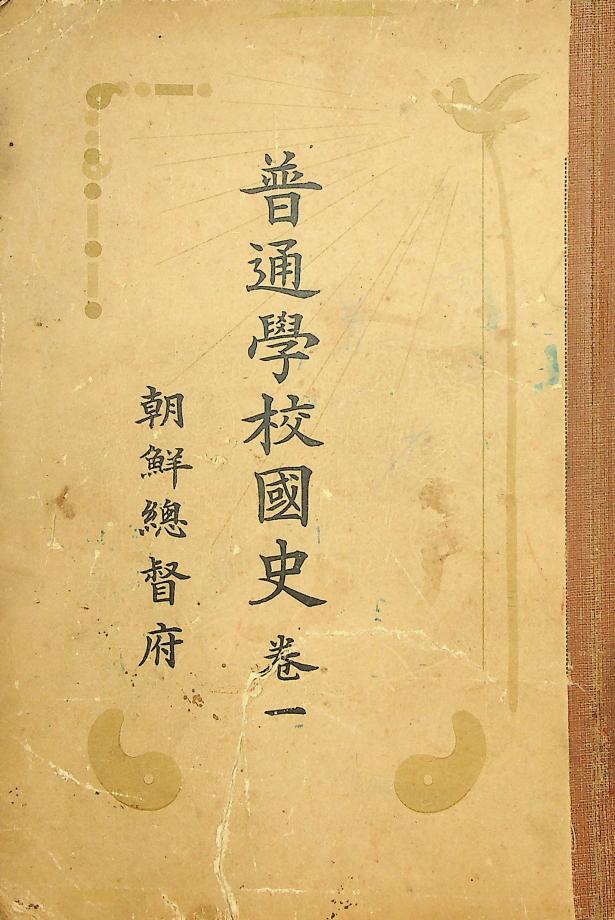 普通學校國史 卷一
朝鮮總督府